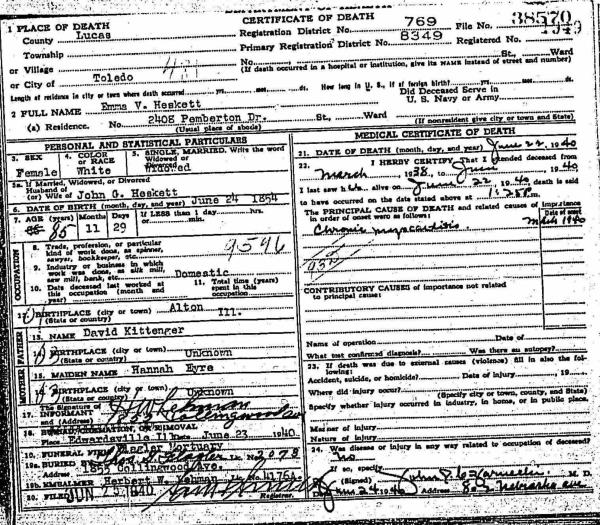 CERTIFICATE OF DEATH
1 PLACE OF DEATH
County Lucas
Registration District No. 769
File No. 38570
Township
Primary Registration District No. 8349
Registered No.
or Village
No. St., Ward
(If death occurred in a hospital or institution, give its NAME instead of street and number)
or City of Toledo
Length of residence in city or town where death occurred yrs. mos. ds.
How long in U. S., if of foreign birth? yrs. mos. ds.
2 FULL NAME Emma V. Heskett
Did Deceased Serve in
U. S. Navy or Army
(a) Residence. No. 2408 Pemberton Dr. St., Ward
(Usual place of abode)
(If nonresident give city or town and State)
PERSONAL AND STATISTICAL PARTICULARS
3. SEX
Female
4. COLOR
or RACE
White
5. SINGLE, MARRIED, Write the word
Widowed or
Divorced
Widowed
5a. If Married, Widowed, or Divorced
Husband of
(or) Wife of John G. Heskett
6. DATE OF BIRTH (month, day, and year) June 24 1854
7. AGE (years) Months Days If LESS than 1 day hrs.
85 11 29 or min.
9596
OCCUPATION
8. Trade, profession, or particular
kind of work done, as spinner,
sawyer, bookkeeper, etc.
9. Industry or business in which
work was done, as silk mill,
saw mill, bank, etc. Domestic
10. Date deceased last worked at
this occupation (month and
year)
11. Total time (years)
spent in this
occupation
12. BIRTHPLACE (city or town) Alton
(State or country) Ill.
FATHER
13. NAME David Kittenger
14. BIRTHPLACE (city or town) Unknown
(State or country)
MOTHER
15. MAIDEN NAME Hannah Eyre
16. BIRTHPLACE (city or town) Unknown
(State or country)
The Signature of
17. INFORMANT
and (Address)
18. BURIAL, CREMATION, OR REMOVAL
Place Edwardsville Ill. Date June 23 1940
19. FUNERAL FIRM
Mortuary
19a. BURIED BY Lic. No. 2073
Address 1855 Collingwood Ave.
19b. EMBALMER Herbert W. Wehman Lic. No. 4176A
20. FILED JUN 25 1940
Registrar.
MEDICAL CERTIFICATE OF DEATH
21. DATE OF DEATH (month, day, and year) June 22 1940
22. I HERBY CERTIFY, That I attended deceased from
March 1938, to June 1940
I last saw h alive on June 22 1940 death is said
to have occurred on the date stated above at
The PRINCIPAL CAUSE OF DEATH and related causes of importance
in order of onset were as follows:
Date of onset
Chronic myocarditis March 1940
CONTRIBUTORY CAUSES of importance not related
to principal cause:
Name of operation Date of
What test confirmed diagnosis? Was there an autopsy?
23. If death was due to external causes (violence) fill in also the following:
Accident, suicide, or homicide? Date of injury 19
Where did injury occur?
(Specify city or town, county, and State)
Specify whether injury occurred in industry, in home, or in public place.
Manner of injury
Nature of injury
24. Was disease or injury in any way related to occupation of deceased?
no
If so, specify
(Signed) M. D.
Date June 24 1940 Address Nebraska ave